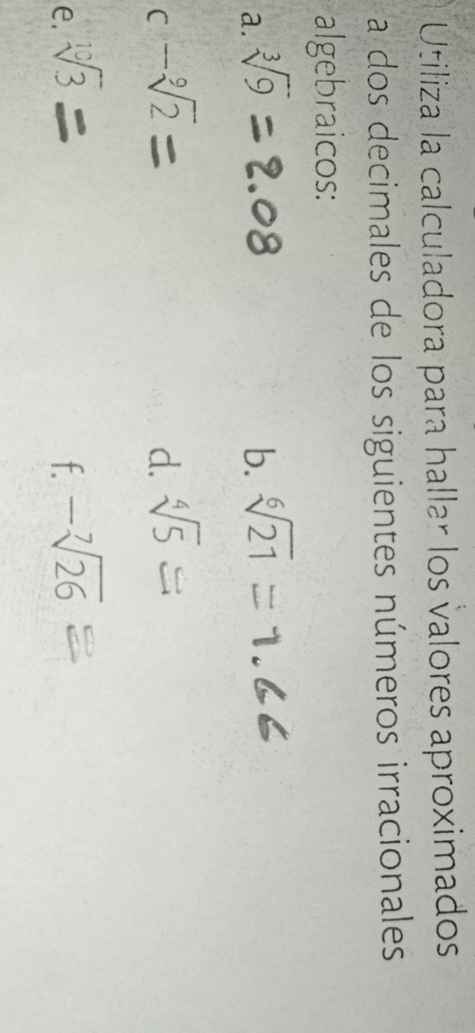 Utiliza la calculadora para hallar los valores aproximados
a dos decimales de los siguientes números irracionales
algebraicos:
a. ∛9 = 2.08 b. ⁶√21 = 1.66
c -⁹√2 = d. ⁴√5 =
e. ¹⁰√3 = f. -⁷√26 =